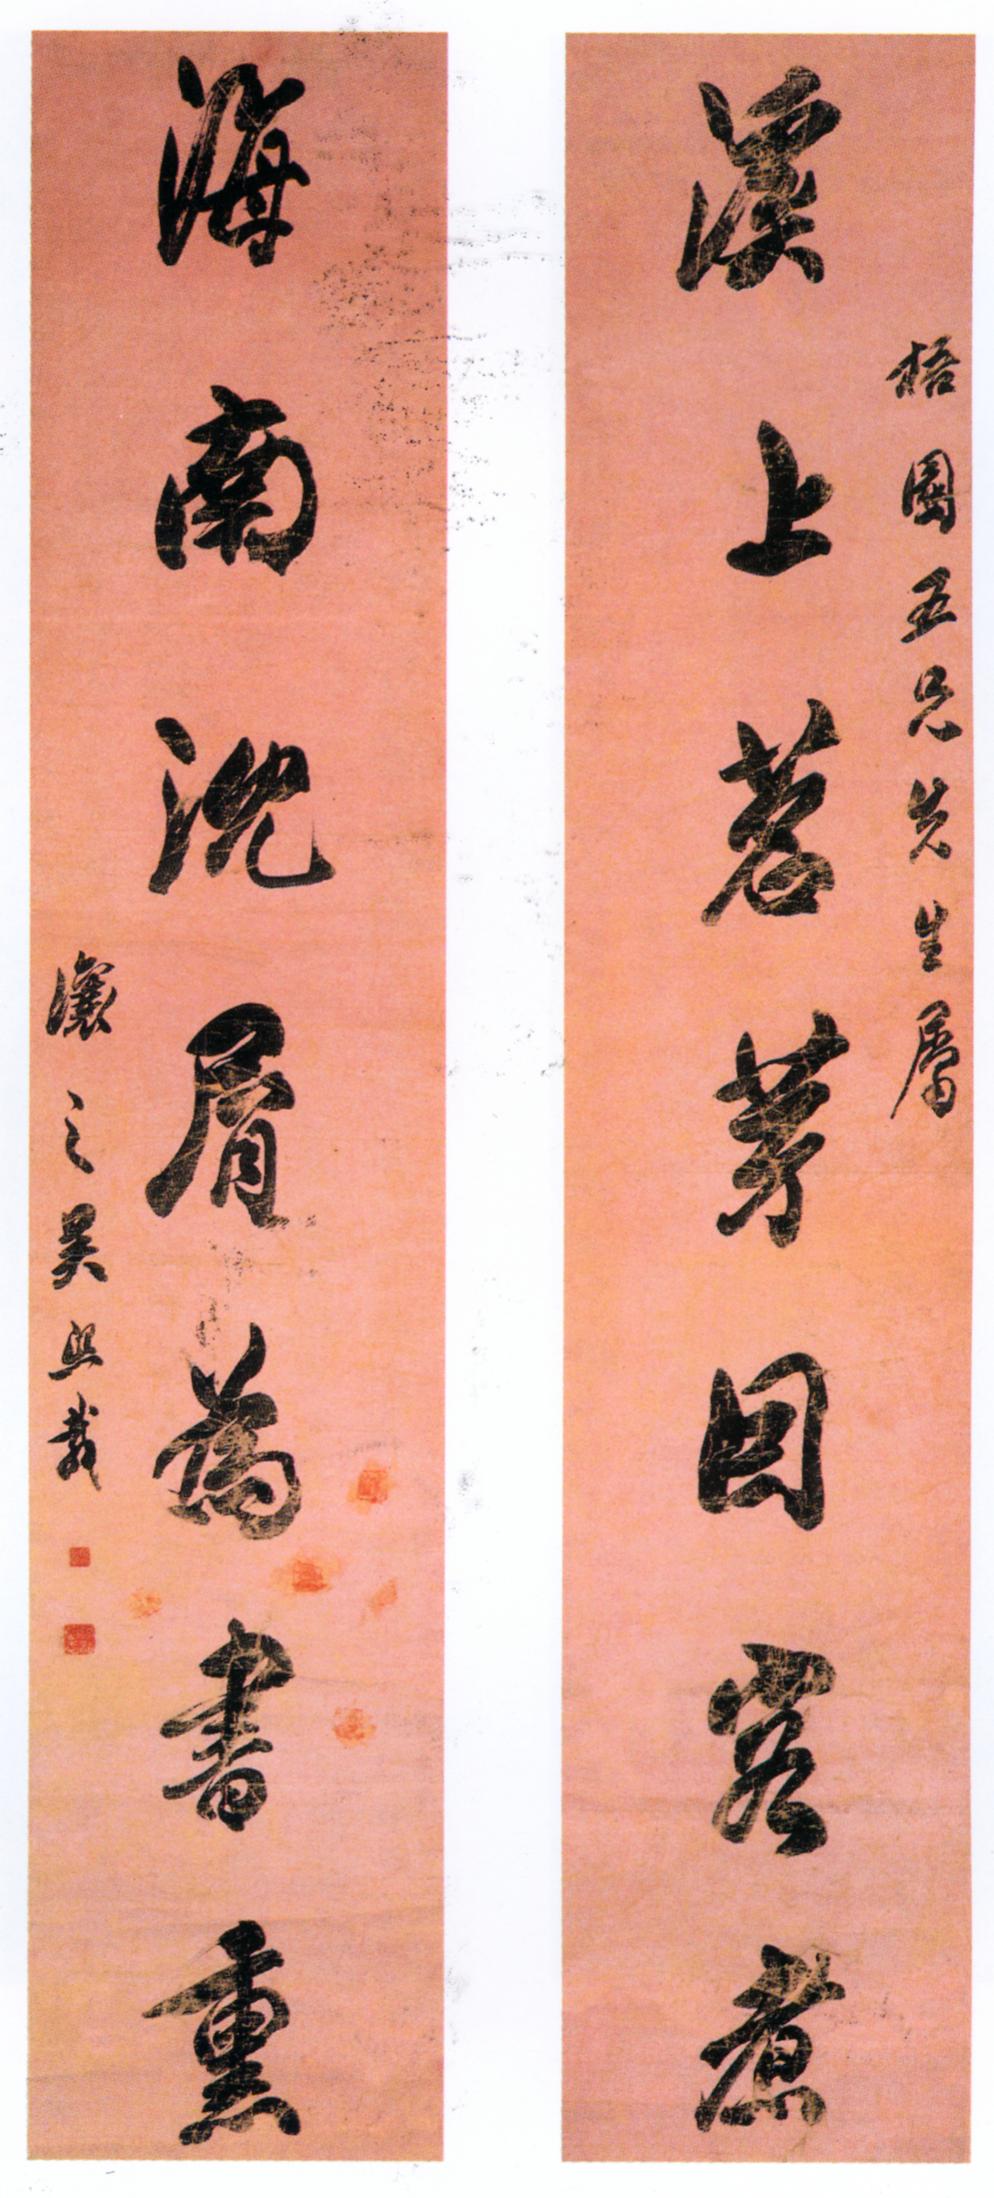 梧園五兄先生屬
溪上茗芽因客煮
海南沈屑為書熏
讓之吳熙載